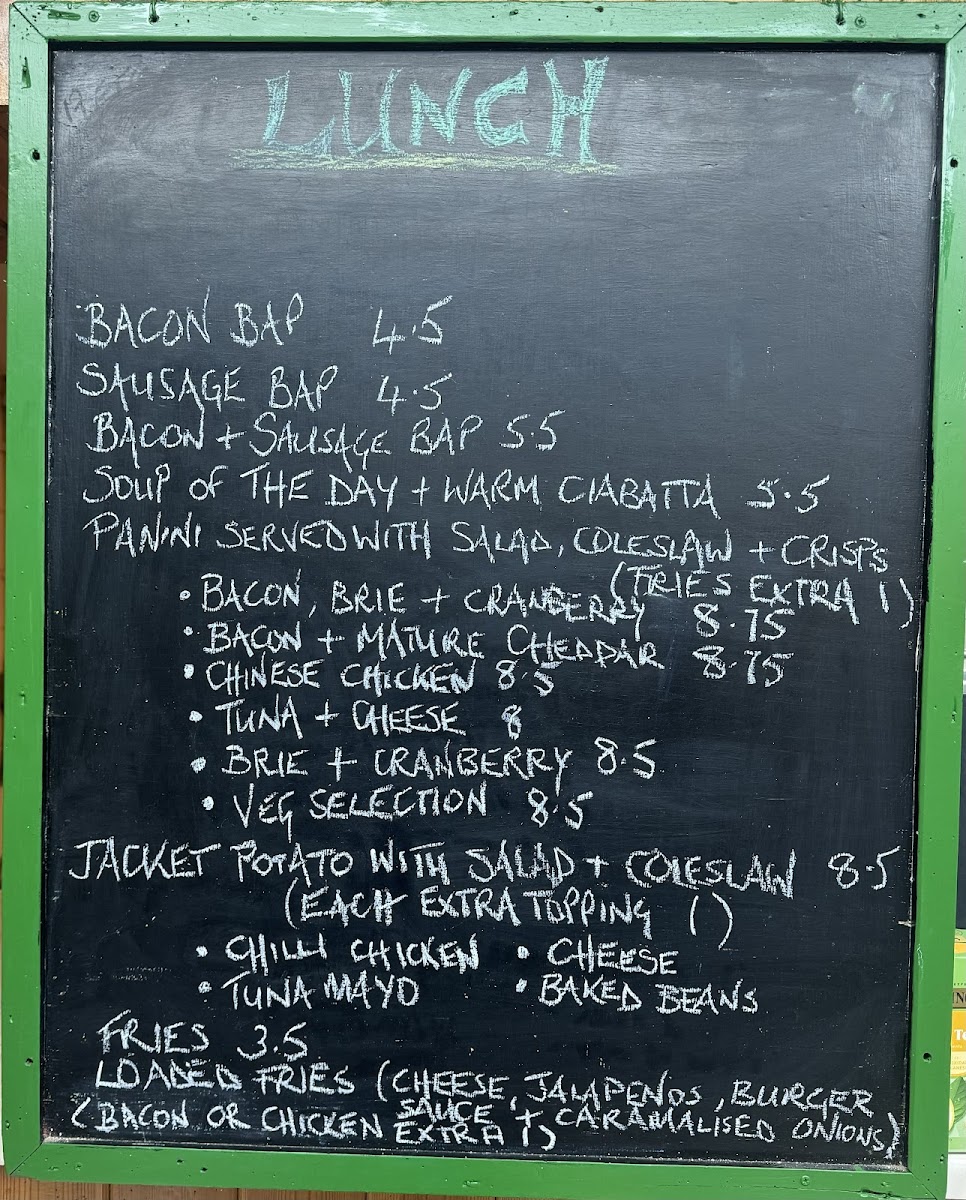 LUNCH
BACON BAP 4.5
SAUSAGE BAP 4.5
BACON + SAUSAGE BAP 5.5
SOUP OF THE DAY + WARM CIABATTA 5.5
PANINI SERVED WITH SALAD, COLESLAW + CRISPS
(FRIES EXTRA 1)
• BACON, BRIE + CRANBERRY 8.75
• BACON + MATURE CHEDDAR 8.75
• CHINESE CHICKEN 8.5
• TUNA + CHEESE 8
• BRIE + CRANBERRY 8.5
• VEG SELECTION 8.5
JACKET POTATO WITH SALAD + COLESLAW 8.5
(EACH EXTRA TOPPING 1)
• CHILLI CHICKEN • CHEESE
• TUNA MAYO • BAKED BEANS
FRIES 3.5
LOADED FRIES (CHEESE, JALAPENOS, BURGER
SAUCE + CARAMALISED ONIONS)
(BACON OR CHICKEN EXTRA 1)